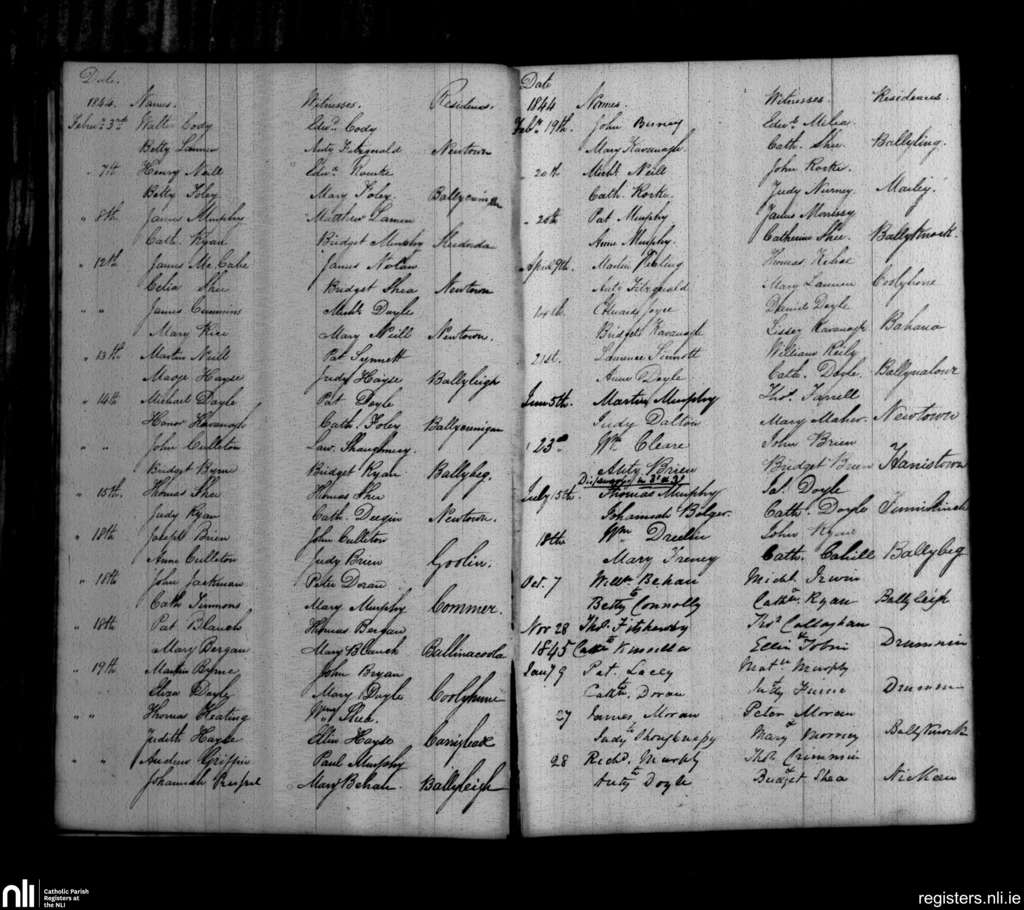 Date.
1844. Names. Witnesses. Residence.
3rd Walter Cody Edwd. Cody
Betty Lannen Anty Fitzgerald Newtown
" 7th Henry Neill Edwd. Rourke
Betty Foley Mary Foley
" 8th James Murphy Matthew Lannen
Cath. Ryan Bridget Murphy
" 12th James McCabe James Nolan
Celia Shee Bridget Shea Newtown
" " James Cummins Michl. Doyle
Mary Rice Mary Neill Newtown.
" 13th Martin Neill Pat Synnott
Madge Hayse Judy Hayse Ballyleigh
" 14th Michael Doyle Pat Doyle
Honor Kavanagh Cath. Foley Ballycunigan
" " John Culleton Law. Shaughnessy.
Bridget Byrne Bridget Ryan Ballybeg.
" 15th Thomas Shee Thomas Shee
Judy Ryan Cath. Newtown.
" 18th Joseph Brien John Culleton
Anne Culleton Judy Brien Goolin.
" 18th John Jackman Peter Doran
Cath Simmons Mary Murphy Commer.
" 18th Pat Blanch Thomas Bergan
Mary Bergan Mary Blanch Ballinacoola
" 19th Martin Byrne John Bryan
Eliza Doyle Mary Doyle Coolyhune
" " Thomas Keating Wm. Shea.
Judith Hayse Ellen Hayse
" " Andrew Griffin Paul Murphy
Johannah Mary Behan. Ballyleigh
Date
1844 Names. Witnesses. Residences.
19th. John Edwd.
Mary Kavanagh. Cath. Shee. Ballyling.
" 20th Michl. Neill John Rorke.
Cath. Rorke. Judy Nurney
" 20th Pat Murphy James
Anne Murphy. Catherine Shee. Ballyknock.
April 9th. Martin Thomas Kehoe
Anty Fitzgerald Mary Lannen Coolyhone
Edward Joyce Daniel Doyle
Bridget Kavanagh Kavanagh Bahana
21st. Laurence Sinnott William Reily
Anne Doyle Cath. Doyle.
June 5th. Martin Murphy Thos. Farrell
Judy Dalton Mary Maher. Newtown
" 23rd Wm Cleare John Brien
Anty Brien Bridget Brien
July 15th. Thomas Murphy Js. Doyle
Johannah Bolger. Cath. Doyle Tinniskinch
18th Wm John Ryan
Mary Treney Cath. Cahill Ballybeg
Oct. 7 Willm. Behan Michl. Irwin
Betty Connolly Cathn. Ryan Ballyleigh
Nov 28 Thos. Thos. Callaghan
1845 Ellen Tobin Drummin
Jany 9 Pat. Lacey Murphy
Cathn. Doran Drummin
27 James Moran Peter Moran
Judy Mary Ballyknock
28 Richd. Murphy Thos. Crimmin
Anty Doyle Bridget Shea
nli Catholic Parish
Registers at
the NLI
registers.nli.ie